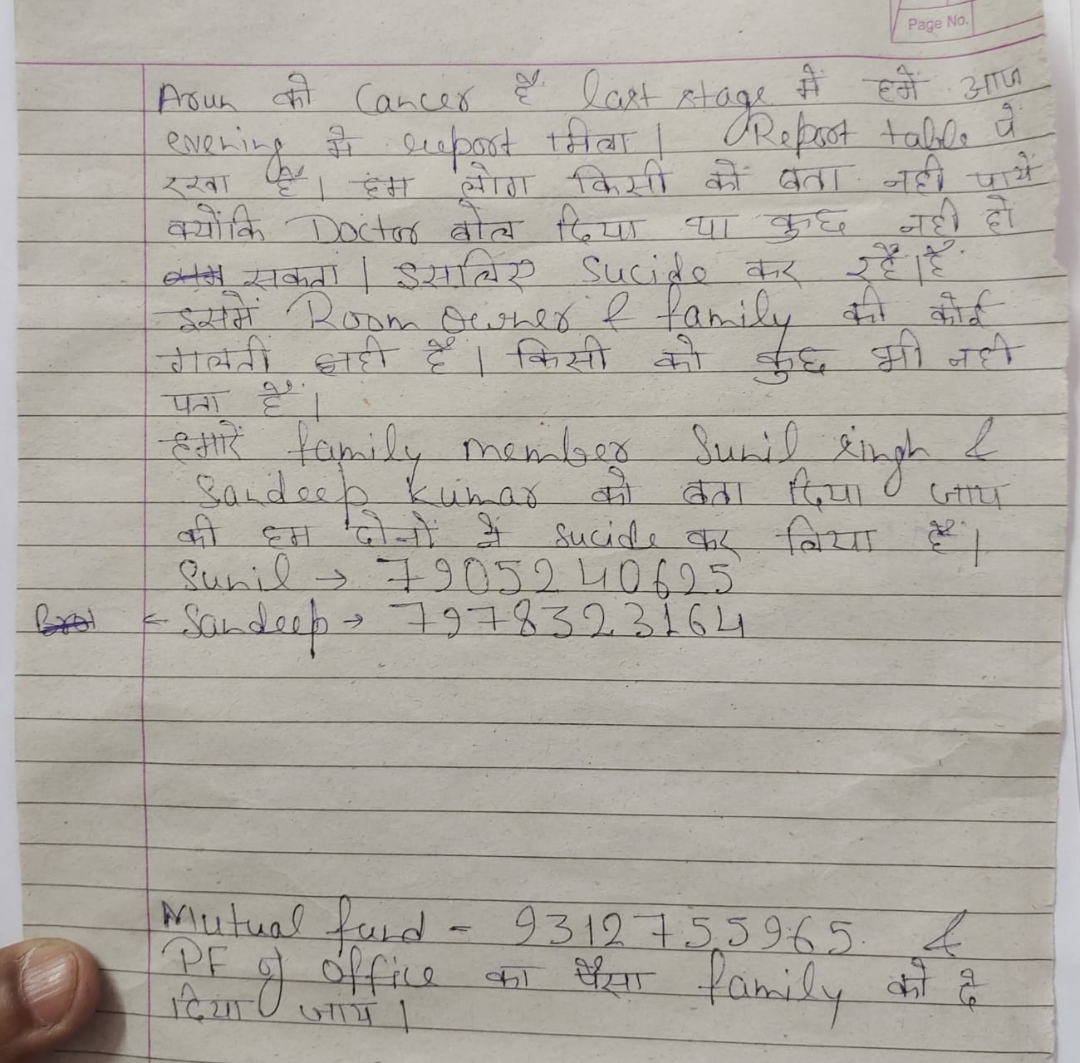 Page No.
Arun को Cancer हैं last stage में हमें आज
evening में report मिला | Report table पे
रखा हैं। हम लोग किसी को बता नही पाये
क्योंकि Doctor बोल दिया था कुछ नही हो
सकता | इसलिए Sucide कर रहें हैं।
इसमें Room Owner & family की कोई
गलती नही हैं | किसी को कुछ भी नही
पता हैं |
हमारें family member Sunil Singh &
Sandeep Kumar को बता दिया जाय
की हम दोनों ने sucide कर लिया हैं |
Sunil → 7905240625
← Sandeep → 7978323164
Mutual fund - 9312755965. &
PF of office का पैसा family को दे
दिया जाय |